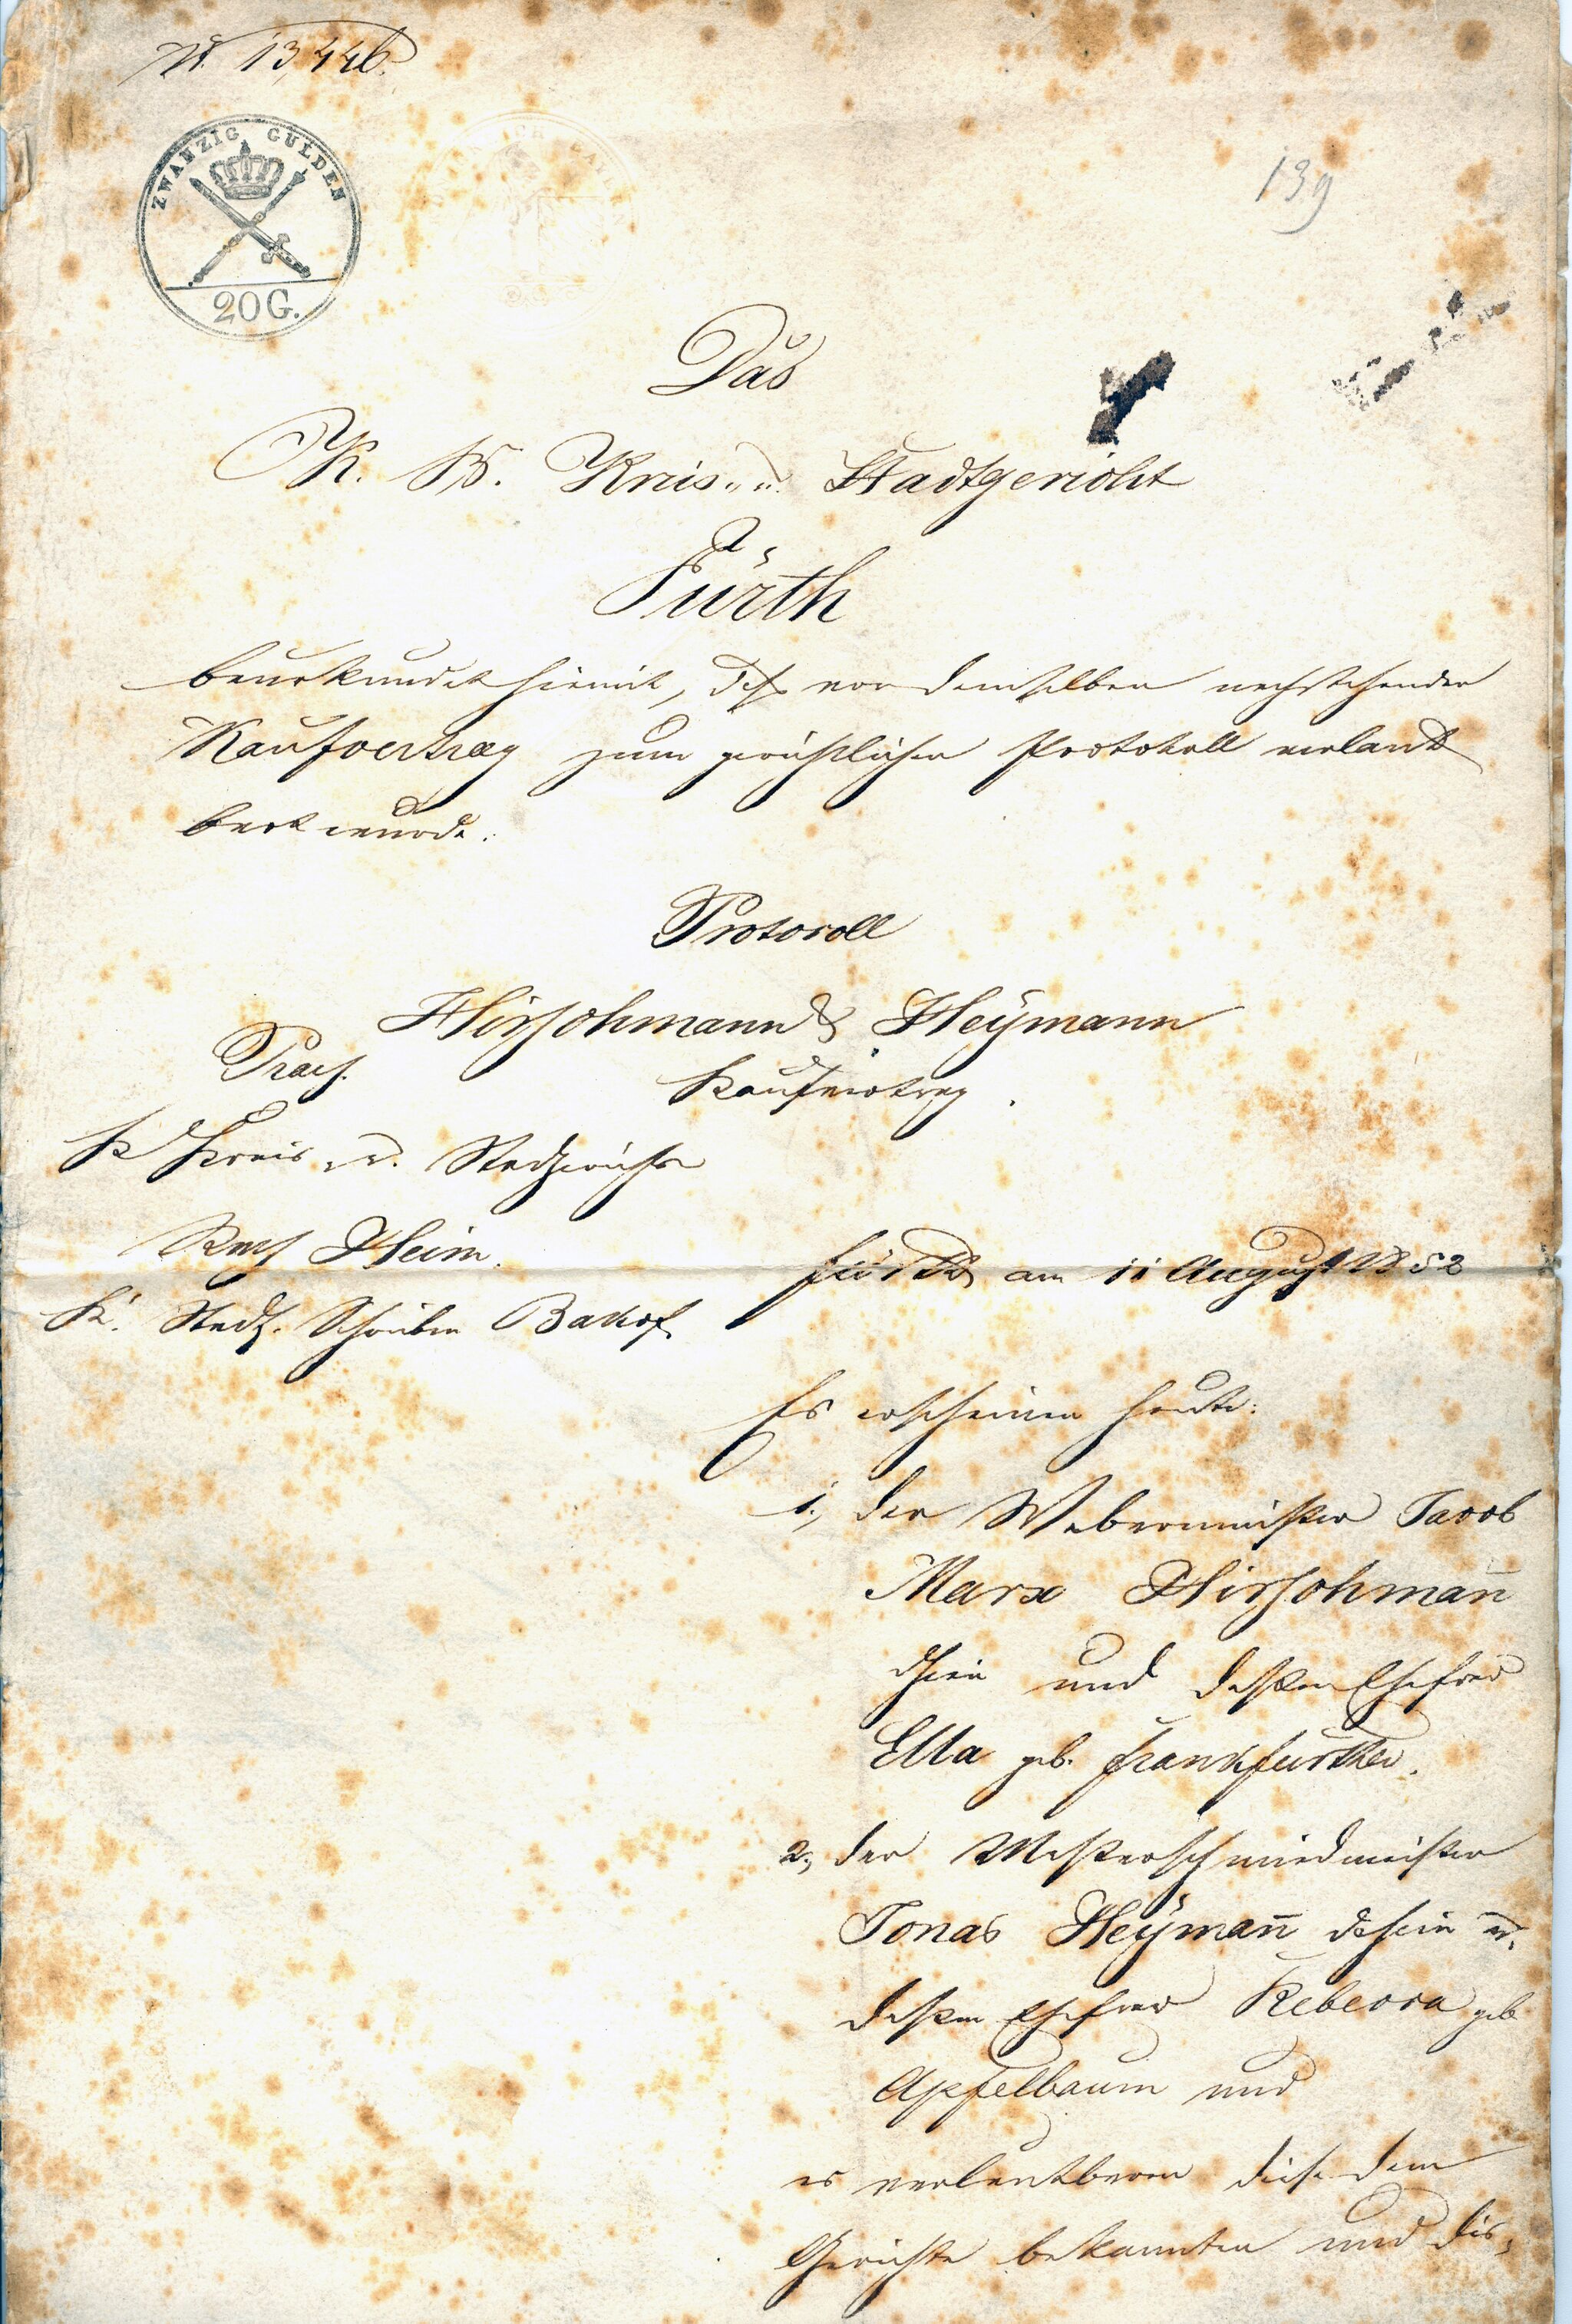 N. 13446.
ZWANZIG GULDEN
20 G.
139
Das
K. B. Kreis- u. Stadtgericht
Fürth
beurkundet hiemit, daß vor demselben nachstehender
Kaufvertrag zum gerichtlichen Protokoll verlaut
bart wurde:
Protocoll
Hirschmann & Heÿmann
Praes.
Kaufvertrag.
K Kreis u. Stadtgerichts
Heim.
K. Stadtg. Schreiber
Fürth am 11 August 1852
Es erscheinen heute:
1., der Webermeister Jacob
Marx Hirschmañ
und dessen Ehefrau
Ella geb. Frankfurther.
2., der Messerschmiedmeister
Jonas Heÿmañ dahier u.
dessen Ehefrau Rebecca geb
Apfelbaum und
es verlautbaren diese dem
Gerichte bekannten und dis-